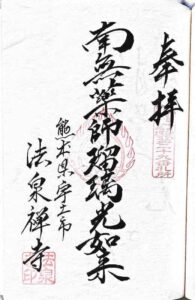 奉拝
南無薬師瑠璃光如来
熊本県宇土市
法泉禅寺